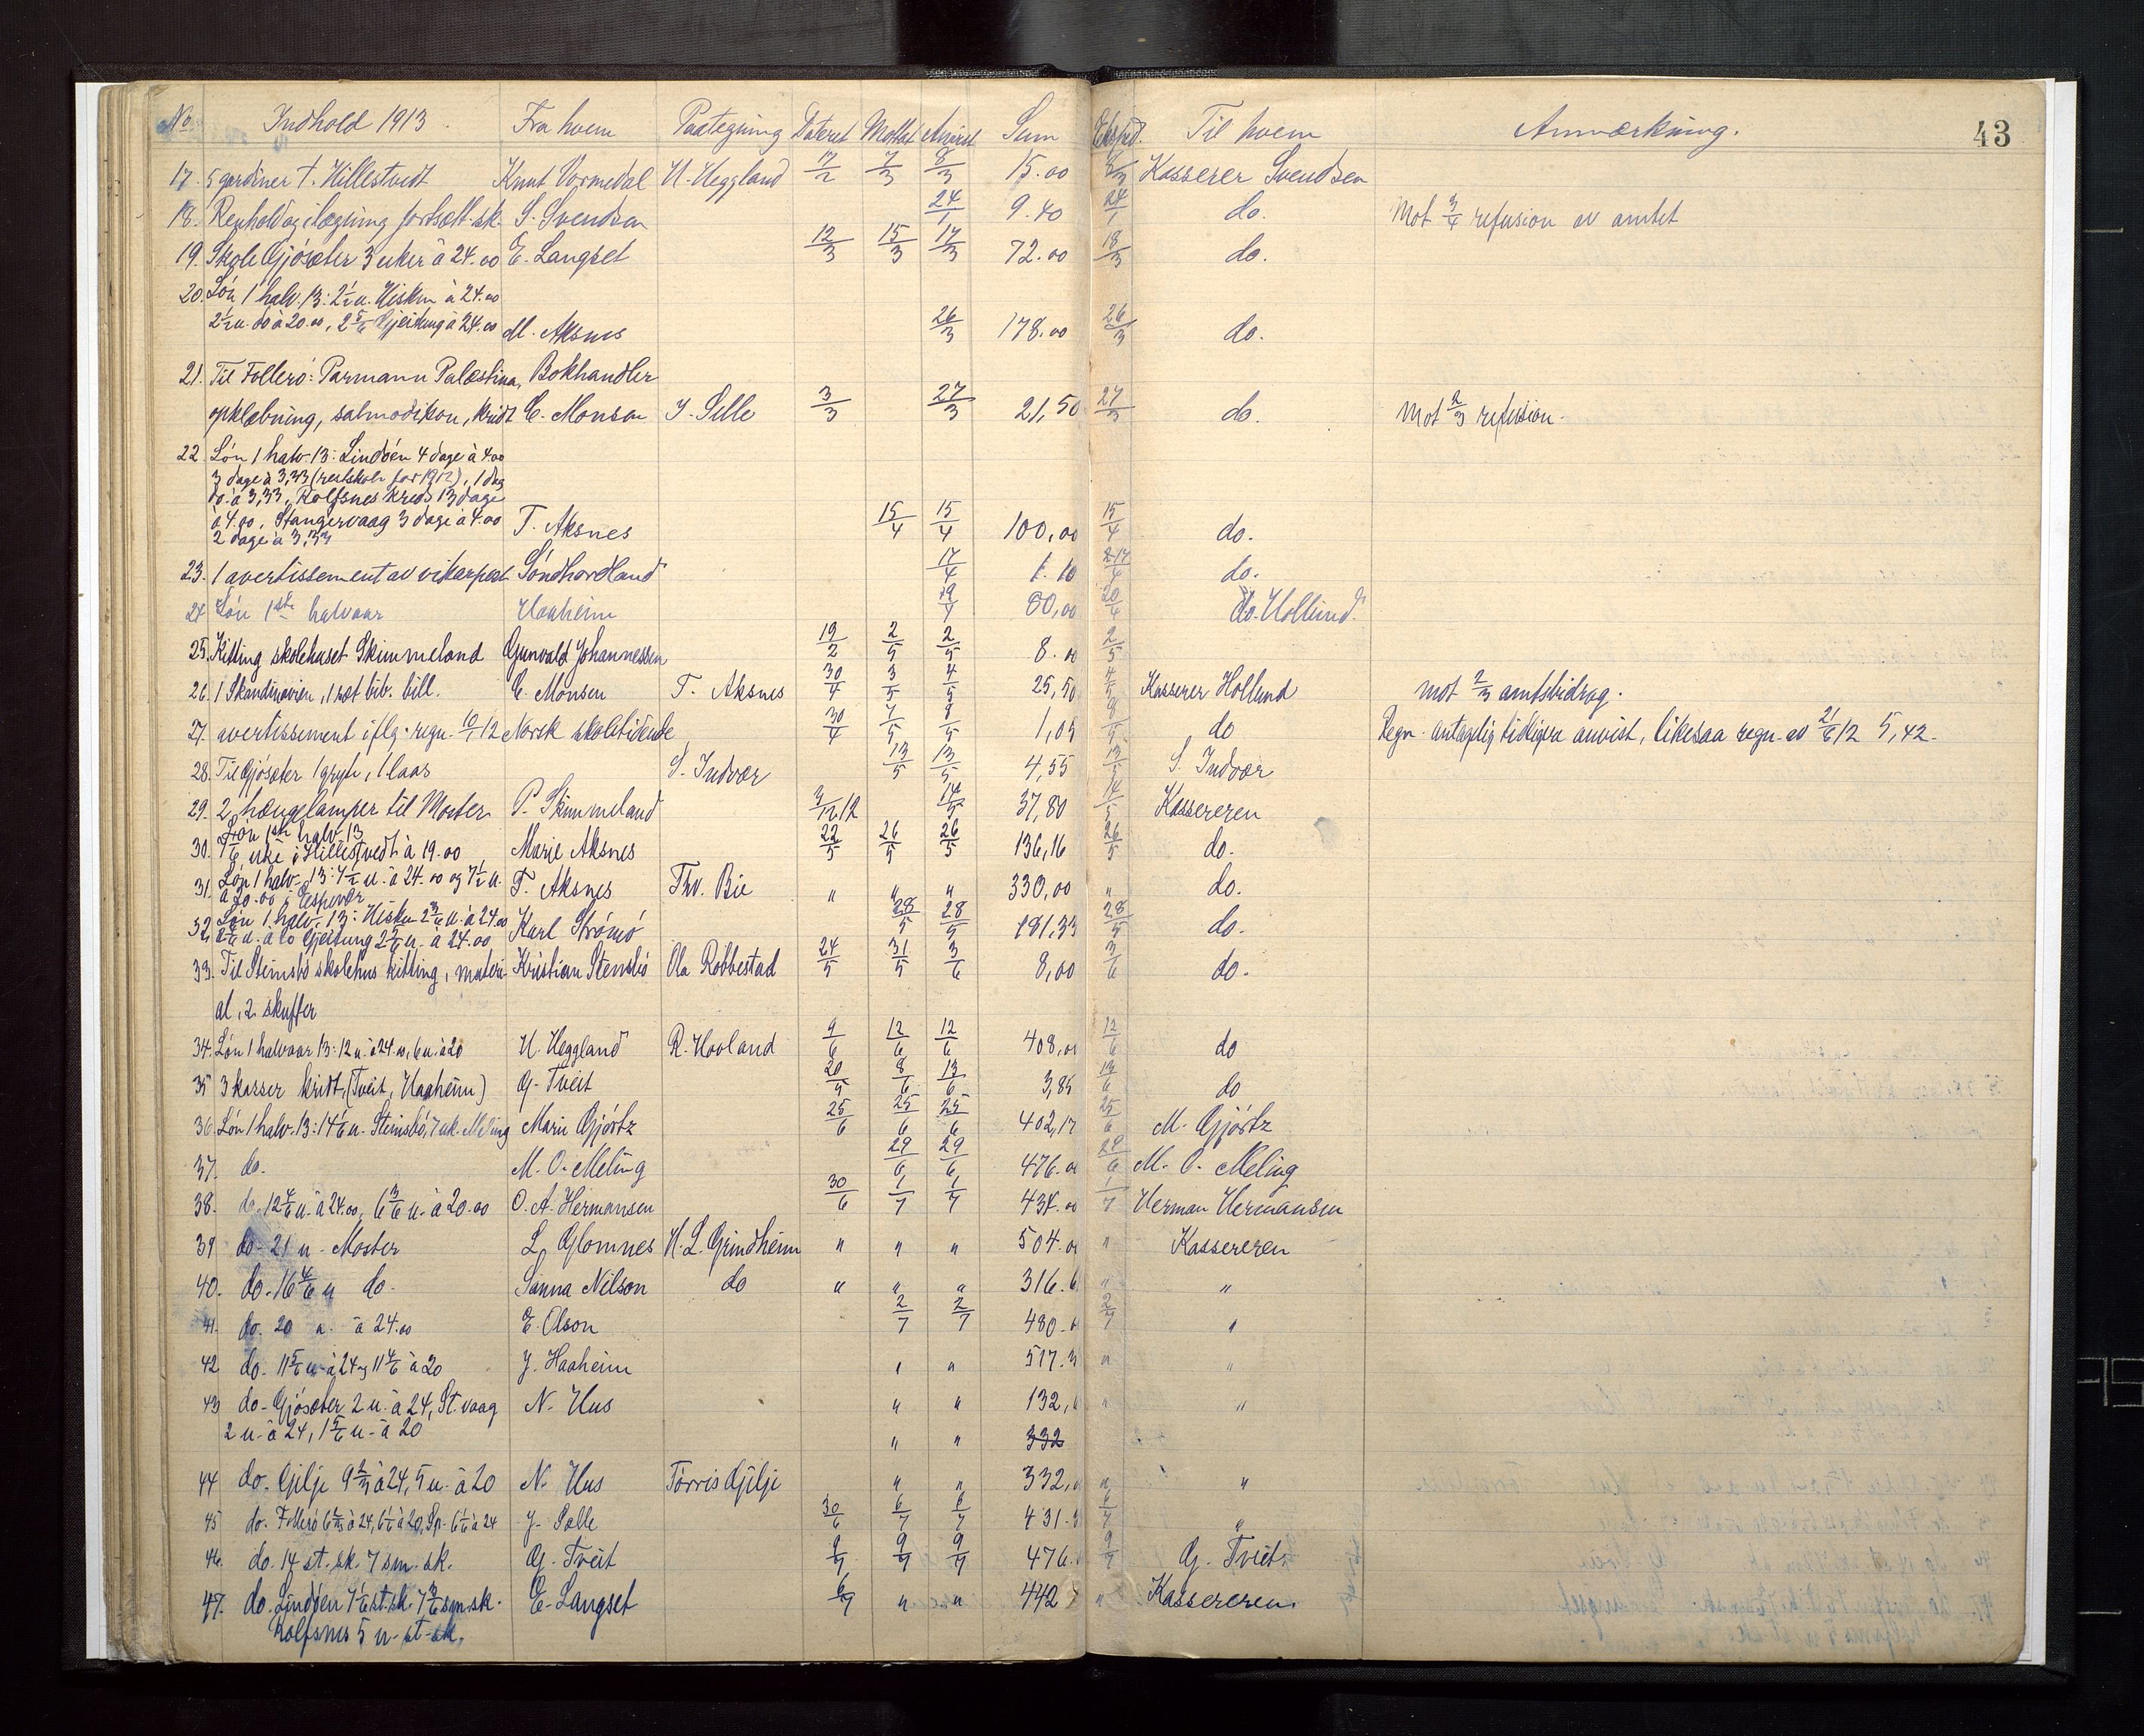 43
No Indhold 1913. Fra hvem Paategning Dateret Mottat Anvist Sum Eksped. Til hvem Anmærkning.
17. 5 gardiner t. Hillestvedt Knut Vormedal H. Heggland 17/2 7/3 8/3 15.00 8/3 Kasserer Svendsen
18. Renhold og ilægning fortsætt.sk. S. Svendsen 24/1 9.40 24/1 do. Mot 3/4 refusion av amtet
19. Skyle Gjøsæter 3 uker à 24.00 E. Langset 12/3 15/3 17/3 72.00 18/3 do.
20. Løn 1 halv. 13: 2 1/2 u. Hisken à 24.00
2 1/2 u. do à 20.00, 2 5/6 Gjeitung à 24.00 M. Aksnes 26/3 178.00 26/3 do.
21. Til Føllerø: Parmann Palæstina, Bokhandler
opklæbning, salmodikon, kridt C. Monsen J. Selle 3/3 27/3 21,50 27/3 do. Mot 2/3 refusion.
22. Løn 1 halv. 13: Lindøen 4 dage à 4.00
3 dage à 3,33 (restskole for 1912), 1 dag
do. à 3,33, Rolfsnes kreds 13 dage
à 4.00, Stangervaag 3 dage à 4.00
2 dage à 3,33 T. Aksnes 15/4 15/4 100,00 15/4 do.
23. 1 avertissement av vikarpost Søndhordland 17/4 1.10 17/4 do.
24 Løn 1ste halvaar Haaheim 19/4 80,00 20/4 do. Hollund.
25. Kitting skolehuset Skimmeland Gunvald Johannessen 19/2 2/5 2/5 8.00 2/5
26. 1 Skandinavien, 1 sæt bib. bill. C. Monsen T. Aksnes 30/4 3/5 4/5 25,50 4/5 Kasserer Hollund mot 2/3 amtsbidrag.
27. avertissement iflg. regn. 10/1 12 Norsk skoletidende 30/4 7/5 8/5 1,05 8/5 do Regn. antagelig tidligere anvist, likesaa regn. av 21/6 12 5,42.
28. Til Gjøsæter 1 gryte, 1 laas S. Indvær 13/5 13/5 4,55 13/5 S. Indvær
29. 2 hængelamper til Moster P. Skimmeland 3/12 12 14/5 37,80 14/5 Kassereren
Løn 1ste halv. 13
30. 7 1/6 uke i Hillestvedt à 19.00 Marie Aksnes 22/5 26/5 26/5 136,16 26/5 do.
31. Løn 1 halv. 13: 7 1/2 u. à 24.00 og 7 1/2 u.
à 20.00 i Espevær T. Aksnes Thv. Bie " " " 330,00 " do.
32. Løn 1 halv. 13: Hisken 2 3/6 u. à 24.00
2 2/6 u. à 20 Gjeitung 2 5/6 u. à 24.00 Karl Strømø 28/5 28/5 181,33 28/5 do.
33. Til Steinsbø skolehus kitting, materi- Kristian Stensbø Ola Robbestad 24/5 31/5 3/6 8,00 3/6 do.
al, 2 skuffer
34. Løn 1 halvaar 13: 12 u. à 24.00, 6 u. à 20 H. Heggland R. Hovland 9/6 12/6 12/6 408,00 12/6 do
35 3 kasser kridt, (Tveit, Haaheim) G. Tveit 20/5 8/6 13/6 3,85 13/6 do
36. Løn 1 halv. 13: 14 1/6 u. Steinsbø, 7 uk. Meling Marie Gjørtz 25/6 25/6 25/6 402,17 25/6 M. Gjørtz
37. do. M. O. Meling 29/6 29/6 476.00 29/6 M. O. Meling
38. do. 12 4/6 u. à 24.00, 6 3/6 u. à 20.00 O. A. Hermansen 30/6 1/7 1/7 434.00 1/7 Herman Hermansen
39 do- 21 u- Moster L. Glomnes H. L. Grindheim " " " 504.00 " Kassereren
40. do. 16 4/6 u do. Sanna Nilson do " " " 316.6 " "
41. do. 20 u. à 24.00 E. Olson 2/7 2/7 480.- 2/7 "
42 do. 11 5/6 u. à 24 og 11 4/6 à 20 J. Haaheim " " 517.3 " "
43 do- Gjøsæter 2 u. à 24, St. vaag N. Hus " " 132, " "
2 u. à 24, 1 5/6 u. à 20 " " 332
44 do. Gilje 9 2/3 à 24, 5 u. à 20 N. Hus Tørris Gilje " " 332, " "
45 do. Føllerø 6 2/3 à 24, 6 1/6 à 20, Sp. 6 1/6 à 24 J. Selle 30/6 6/7 6/7 431.3 6/7 "
46. do. 14 st. sk. 7 sm. sk. G. Tveit 9/7 9/7 9/7 476. 9/7 G. Tveit.
47. do. Lindøen 7 1/6 st. sk. 7 3/6 sm. sk. E. Langset 6/7 " " 442 " Kassereren.
Rolfsnes 5 u. st. sk.